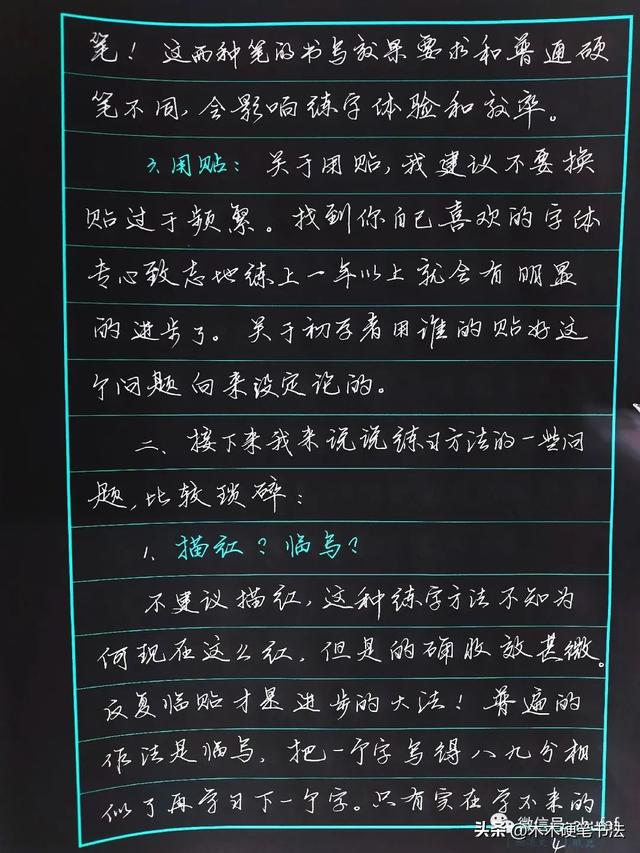 笔！这两种笔的书写效果要求和普通硬
笔不同，会影响练字体验和效率。
3.用贴：关于用贴，我建议不要换
贴过于频繁。找到你自己喜欢的字体
专心致志地练上一年以上就会有明显
的进步了。关于初学者用谁的贴好这
个问题向来没定论的。
二、接下来我来说说练习方法的一些问
题，比较琐碎：
1、描红？临写？
不建议描红，这种练字方法不知为
何现在这么红，但是的确收效甚微。
反复临贴才是进步的大法！普遍的
作法是临写，把一个字写得八九分相
似了再学习下一个字。只有实在学不来的
微信号
头条@木木硬笔书法
4